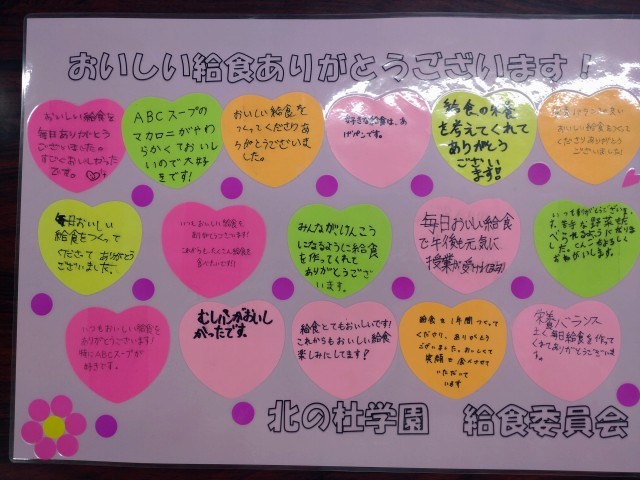 おいしい給食ありがとうございます!
おいしい給食を
毎日ありがとう
ございました。
すごくおいしかった
です。
ABCスープの
マカロニがやわ
らかくておいし
いので大好
きです!
おいしい給食を
つくってくださりあ
りがとうございまし
た。
好きな給食は、あ
げパンです。
給食の栄養
を考えてくれて
ありがとう
ござい
ます!!
おいしい給食をつくって
くださりありがとう
ございました!
毎日おいしい
給食をつくって
くださって ありがとう
ございました。
いつもおいしい給食を
ありがとうございます!
これからも、たくさん給食を
食べたいです!
みんながけんこう
になるように給食
を作ってくれて
ありがとうござ
います。
毎日おいしい給食
で午後も元気に、
授業が受けれます!
いつもありがとうございま
す。苦手な野菜もた
べられるようになりま
した。これからもよろしく
おねがいします。
いつもおいしい給食を
ありがとうございます!
特にABCスープが
好きです。
むしパンがおいし
かったです。
給食とてもおいしいです!
これからもおいしい給食
楽しみにしてます!
給食を1年間つくって
くださり、ありがとう
ございました。おいしくて
笑顔で食べさせて
いただいて
います
栄養バランス
よく毎日給食を作って
くれてありがとうございま
す。
北の杜学園 給食委員会